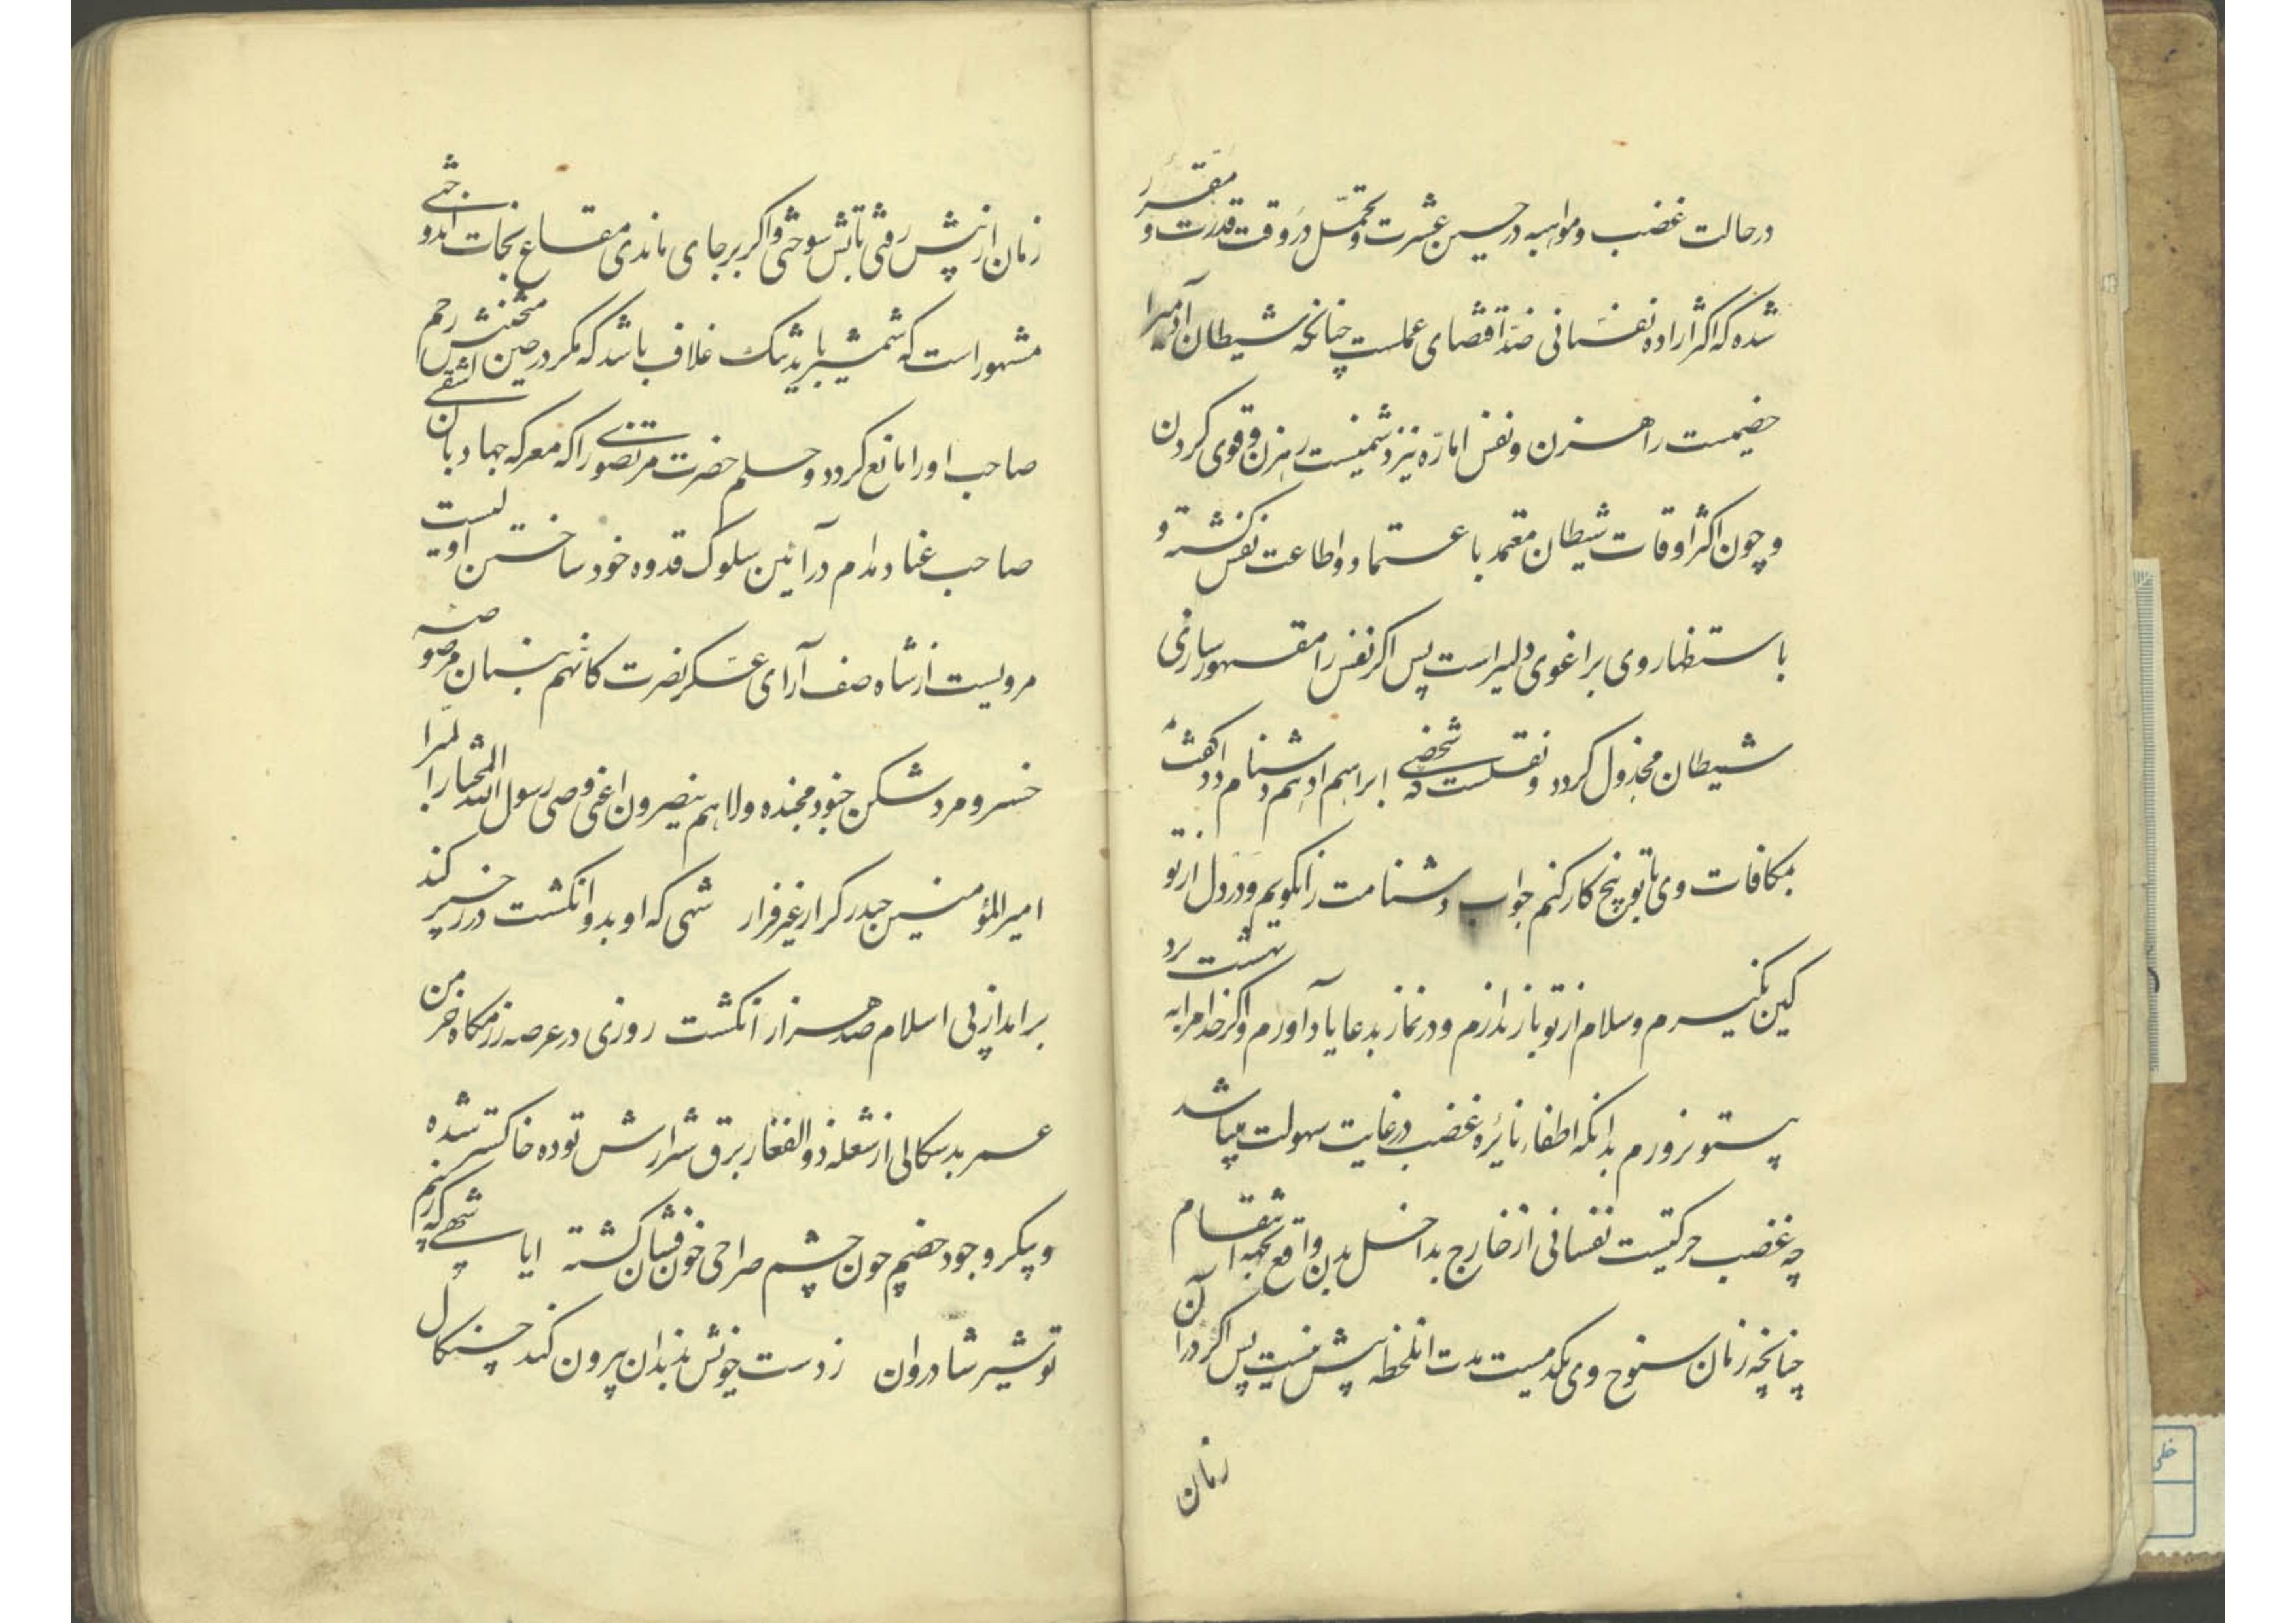 درحالت غضب و مواسیه در حسین عشرت و تحمّل در وقت قدرت و مقرّر
شده که اکثر اراده نفسانی ضدّ اقتضای عملست چنانچه شیطان آدمیرا
خصمیست راهزن و نفس امّاره نیز دشمنیست رهزن و قوی کردن
و چون اکثر اوقات شیطان معتمد با عتماد و اطاعت نفس کشته و
باستظهار وی بر اغوی دلیر است پس اکر نفس را مقهور سازی
شیطان مخذول کردد و نقلست که شخصی ابراهیم ادهم دشنام داد کفت
بمکافات وی با تو پنج کار کنم جواب دشنامت را نکویم و در دل از تو
کین نکیرم و سلام از تو باز ندارم و در نماز بدعا یاد آورم و اکر خدا مرا به بهشت برد
بیتو نروم بدانکه اطفاء نایره غضب در غایت سهولت میباشد
چه غضب حرکتیست نفسانی از خارج بداخل بدن واقع بجهة انتقام
چنانچه زمان سنوح وی یکدمیست مدت انلحظه بیش نیست پس اکر در آن
زمان
زمان از پیش رفتی تابش سوختی و اکر بر جای ماندی متاع نجات اندوختی
مشهور است که شمشیر باید تنک غلاف باشد که مکر در حین کشیدنش رحم
صاحب او را مانع کردد و حلم حضرت مرتضوی را که معرکه جهاد با آن اشقی
صاحب عناد مدام در آئین سلوک قدوه خود ساختن اولیست
مرویست از شاه صف آرای عسکر نصرت کانهم بنیان مرصوص
خسرو مرد شکن جنود مجنده ولا هم ینصرون اعنی وصی رسول الله المختار
امیر المؤمنین حیدر کرار غیر فرار شهی که او بدو انکشت در ز خیبر کند
برامد از پی اسلام صد هزار انکشت روزی در عرصه رزمکاه خرمن
عمر بدسکالی از شعله ذوالفقار برق شرارش توده خاکستر شده
و پیکر وجود خصم چون چشم صراحی خون فشان کشته ایا شهی که
تو شیر شادروان ز دست خویش بدندان بیرون کند چنکال